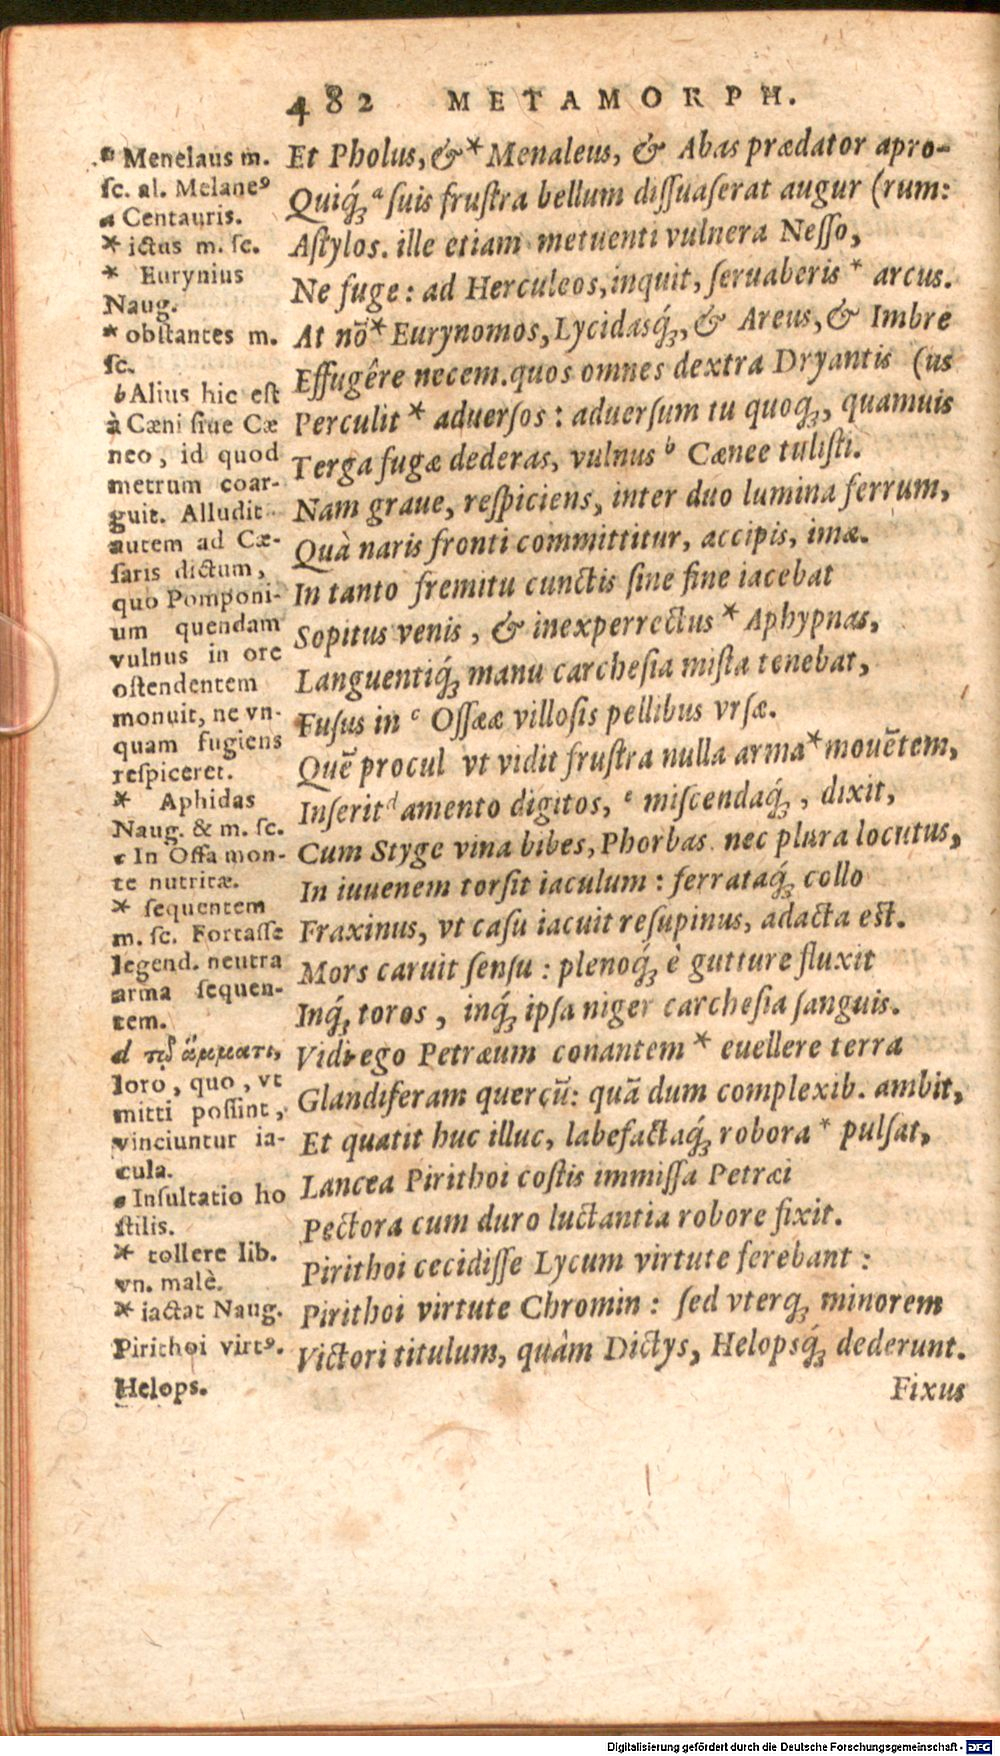 482 METAMORPH.
* Menelaus m.
sc. al. Melaneꝰ
a Centauris.
* ictus m. sc.
* Eurynius
Naug.
* obstantes m.
sc.
b Alius hic est
à Cæni siue Cæ
neo, id quod
metrum coar-
guit. Alludit
autem ad Cæ-
saris dictum,
quo Pomponi-
um quendam
vulnus in ore
ostendentem
monuit, ne vn-
quam fugiens
respiceret.
* Aphidas
Naug. & m. sc.
c In Ossa mon-
te nutritæ.
* sequentem
m. sc. Fortasse
legend. neutra
arma sequen-
tem.
d τῷ ἅμματι,
loro, quo, vt
mitti possint,
vinciuntur ia-
cula.
e Insultatio ho
stilis.
* tollere lib.
vn. malè.
* iactat Naug.
Pirithoi virtꝰ.
Helops.
Et Pholus, & * Menaleus, & Abas prædator apro-
Quiq́ꝫ ᵃ suis frustra bellum dissuaserat augur (rum:
Astylos. ille etiam metuenti vulnera Nesso,
Ne fuge: ad Herculeos, inquit, seruaberis * arcus.
At nõ * Eurynomos, Lycidasq́ꝫ, & Areus, & Imbre
Effugêre necem. quos omnes dextra Dryantis (us
Perculit * aduersos: aduersum tu quoqꝫ, quamuis
Terga fugæ dederas, vulnus ᵇ Cænee tulisti.
Nam graue, respiciens, inter duo lumina ferrum,
Quà naris fronti committitur, accipis, imæ.
In tanto fremitu cunctis sine fine iacebat
Sopitus venis, & inexperrectus * Aphypnas,
Languentiq́ꝫ manu carchesia mista tenebat,
Fusus in ᶜ Ossææ villosis pellibus vrsæ.
Quẽ procul vt vidit frustra nulla arma * mouẽtem,
Inserit ᵈ amento digitos, ᵉ miscendaq́ꝫ, dixit,
Cum Styge vina bibes, Phorbas. nec plura locutus,
In iuuenem torsit iaculum: ferrataq́ꝫ collo
Fraxinus, vt casu iacuit resupinus, adacta est.
Mors caruit sensu: plenoq́ꝫ è gutture fluxit
Inq́ꝫ toros, inq́ꝫ ipsa niger carchesia sanguis.
Vidi ego Petræum conantem * euellere terra
Glandiferam quercũ: quã dum complexib. ambit,
Et quatit huc illuc, labefactaq́ꝫ robora * pulsat,
Lancea Pirithoi costis immissa Petræi
Pectora cum duro luctantia robore fixit.
Pirithoi cecidisse Lycum virtute ferebant:
Pirithoi virtute Chromin: sed vterqꝫ minorem
Victori titulum, quàm Dictys, Helopsq́ꝫ dederunt.
Fixus
Digitalisierung gefördert durch die Deutsche Forschungsgemeinschaft - DFG